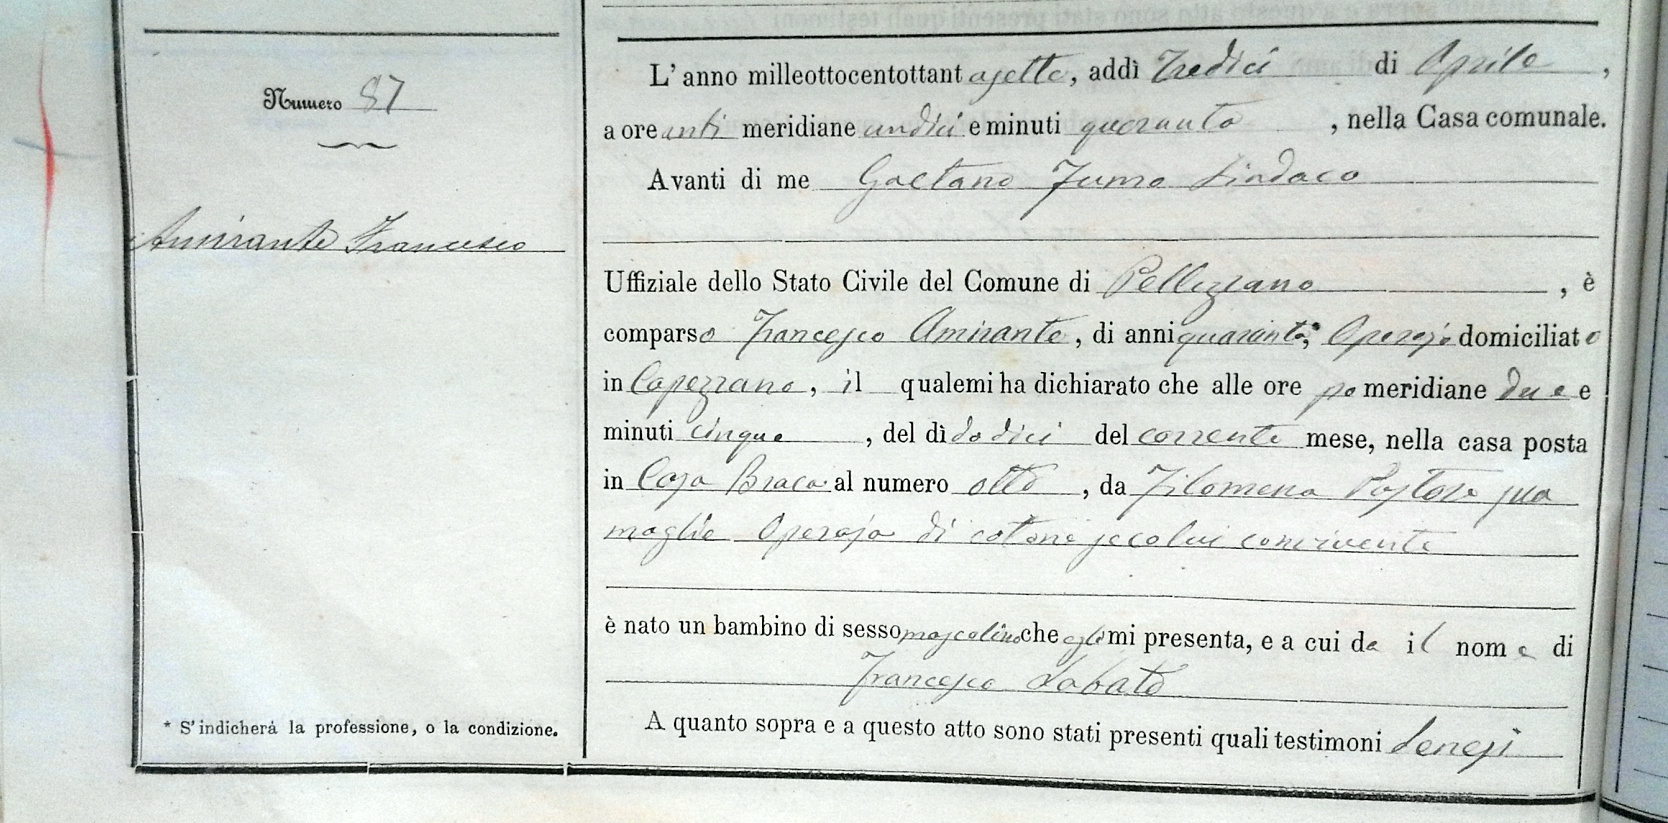 Numero 87
Amirante Francesco
* S'indicherà la professione, o la condizione.
L'anno milleottocentottantasette, addì Tredici di Aprile,
a ore anti meridiane undici e minuti quaranta, nella Casa comunale.
Avanti di me Gaetano Fumo Sindaco
Uffiziale dello Stato Civile del Comune di Pellezzano, è
comparso Francesco Amirante, di anni quaranta, Operajo domiciliato
in Capezzano, il quale mi ha dichiarato che alle ore po meridiane due e
minuti cinque, del dì dodici del corrente mese, nella casa posta
in Casa Braca al numero otto, da Filomena Pastore sua
moglie Operaja di cotone secolui convivente
è nato un bambino di sesso mascolino che egli mi presenta, e a cui da il nome di
Francesco Sabato
A quanto sopra e a questo atto sono stati presenti quali testimoni Genesi